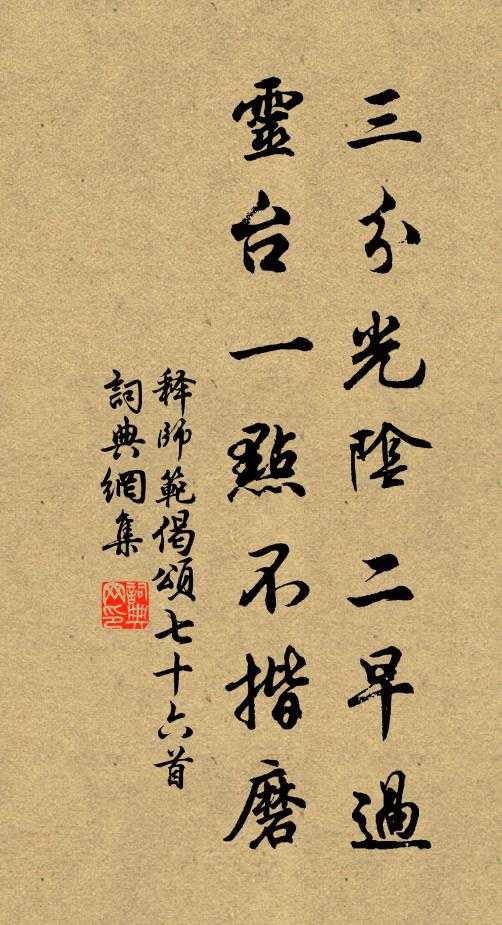 三分光陰二早過
靈台一點不揩磨
释師範偈頌七十六首
詞典網集
詞典
网印